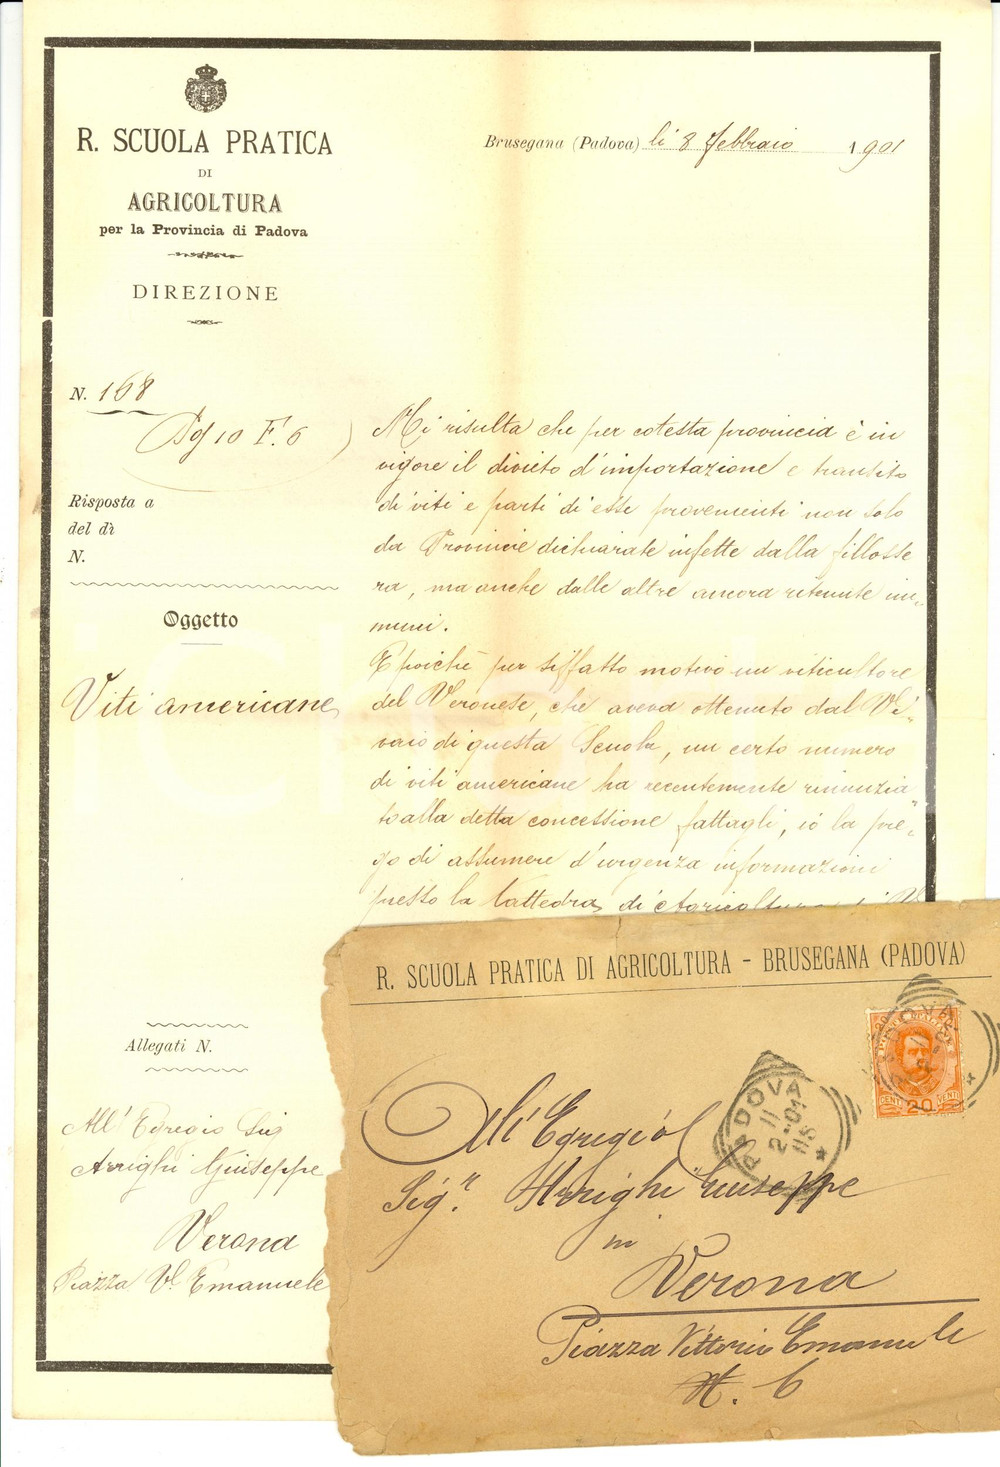 R. SCUOLA PRATICA
DI
AGRICOLTURA
per la Provincia di Padova
DIREZIONE
Brusegana (Padova) lì 8 febbraio 1901
N. 168
Pos 10 F. 6
Risposta a
del dì
N.
Oggetto
Viti americane
Mi risulta che per cotesta provincia è in
vigore il divieto d'importazione e transito
di viti e parti di esse provenienti non solo
da Provincie dichiarate infette dalla fillosse
ra, ma anche dalle altre ancora ritenute im-
muni.
E poichè per siffatto motivo un viticultore
del Veronese, che aveva ottenuto dal Vi-
vaio di questa Scuola, un certo numero
di viti americane ha recentemente rinunzia
to alla detta concessione fattagli, io la pre-
go di assumere d'urgenza informazioni
presso la Cattedra di Agricoltura di
Allegati N.
All' Egregio Sig
Arrighi Giuseppe
Verona
Piazza V. Emanuele
R. SCUOLA PRATICA DI AGRICOLTURA - BRUSEGANA (PADOVA)
PADOVA
11
2-01
11 S
CENTI 20 VENTI
All' Egregio
Sig.r Arrighi Giuseppe
in
Verona
Piazza Vittorio Emanuele
N. 6